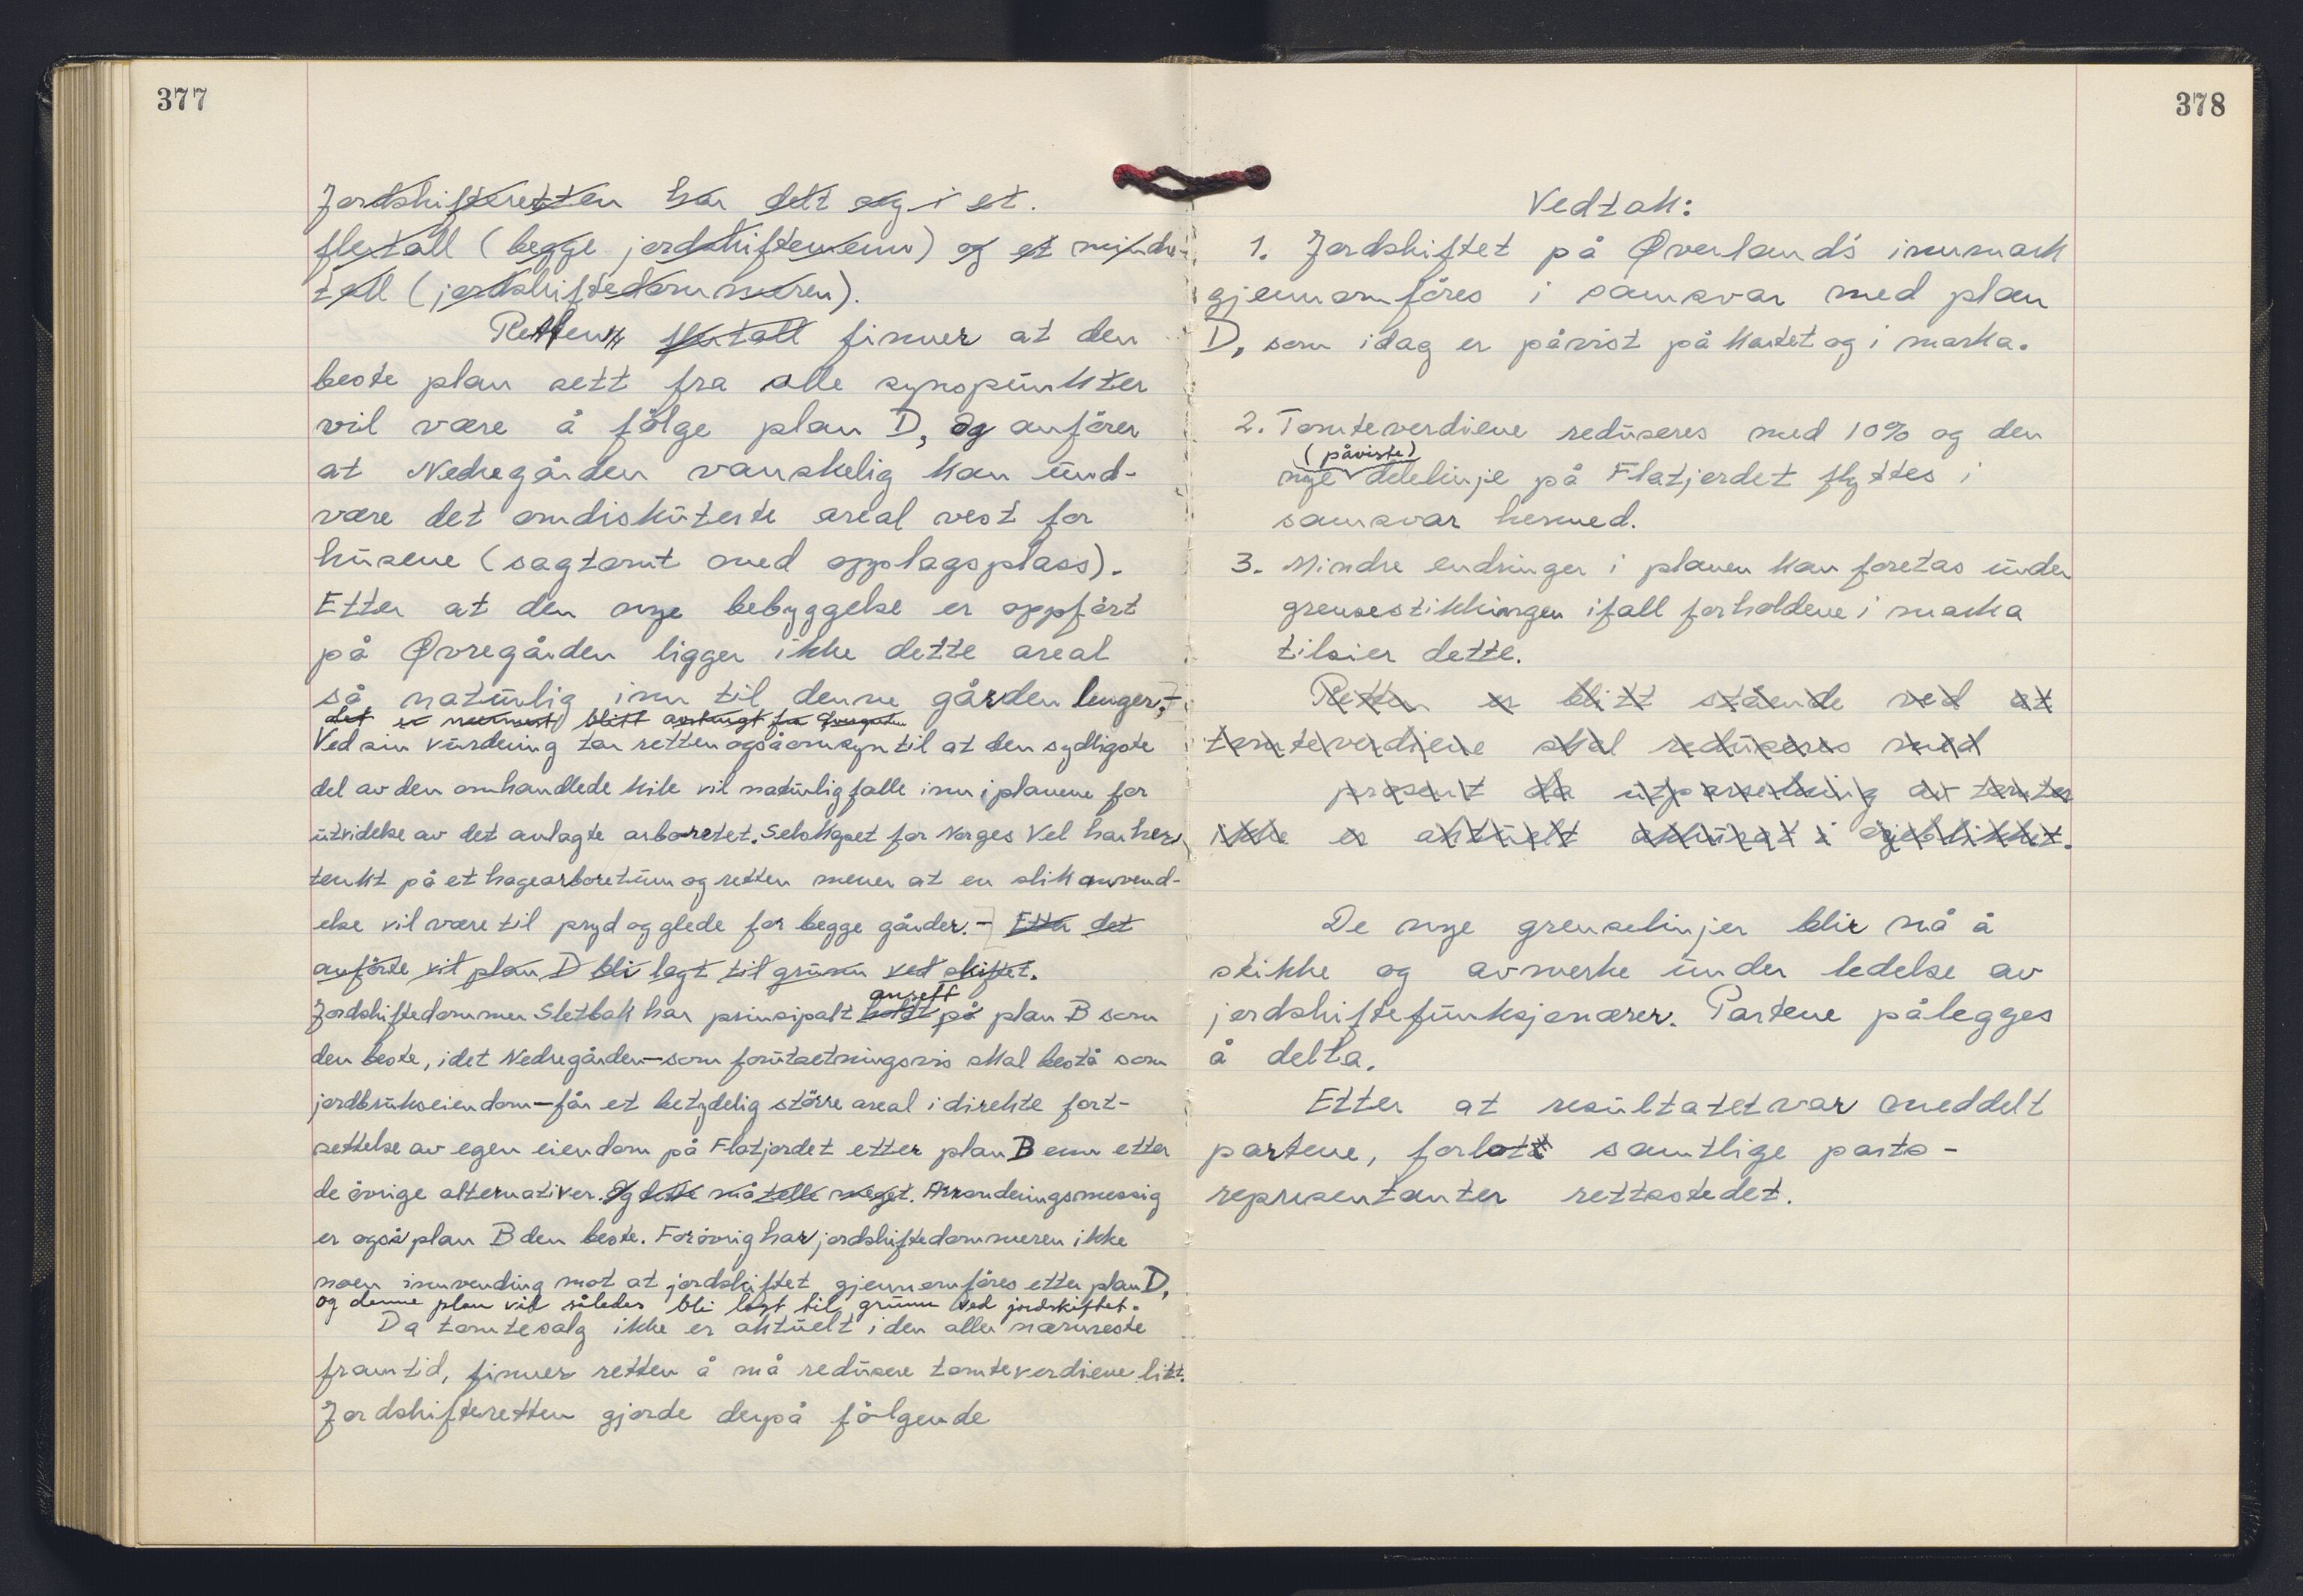 377
Jordskifteretten har delt seg i et.
fletall (begge jordskiftemenn) og et mindre-
tall (jordskiftedommeren).
Retten fletall finner at den
beste plan sett fra alle synspunkter
vil være å følge plan D, og anfører
at Nedregården vanskelig kan und-
være det omdiskuterte areal vest for
husene (sagtomt med opplagsplass).
Etter at den nye bebyggelse er oppført
på Øvregården ligger ikke dette areal
så naturlig inn til denne gården lenger,-
det er nærmest blitt avstengt fra
Ved sin vurdering tar retten også omsyn til at den sydligste
del av den omhandlede kile vil naturlig falle inn i planene for
utvidelse av det anlagte arboretet. Selskapet for Norges Vel har her
tenkt på et hagearboretum og retten mener at en slik anvend-
else vil være til pryd og glede for begge gårder.- Etter det
anførte vil plan D bli lagt til grunn ved skiftet.
ansett
Jordskiftedommer Sletbak har prinsipalt holdt på plan B som
den beste, idet Nedregården–som forutsetningsvis skal bestå som
jordbrukseiendom–får et betydelig større areal i direkte fort-
settelse av egen eiendom på Flatjordet etter plan B enn etter
de øvrige alternativer. Og dette må telle meget. Arronderingsmessig
er også plan B den beste. Forøvrig har jordskiftedommeren ikke
noen innvending mot at jordskiftet gjennomføres etter plan D,
og denne plan vil således bli lagt til grunn ved jordskiftet.
Da tomtesalg ikke er aktuelt i den aller nærmeste
framtid, finner retten å må redusere tomteverdiene litt.
Jordskifteretten gjorde derpå følgende
378
Vedtak:
1. Jordskiftet på Øverlands innmark
gjennomføres i samsvar med plan
D, som idag er påvist på kartet og i marka.
2. Tomteverdiene reduseres med 10% og den
(påviste)
nye delelinje på Flatjordet flyttes i
samsvar hermed.
3. Mindre endringer i planen kan foretas under
grensestikkingen ifall forholdene i marka
tilsier dette.
Retten er blitt stående ved at
tomteverdiene skal reduseres med
prosent da utparsellering av tomter
ikke er aktuelt akkurat i øjeblikket.
De nye grenselinjer blir nå å
stikke og avmerke under ledelse av
jordskiftefunksjonærer. Partene pålegges
å delta.
Etter at resultatet var meddelt
partene, forlot samtlige parts-
representanter rettsstedet.